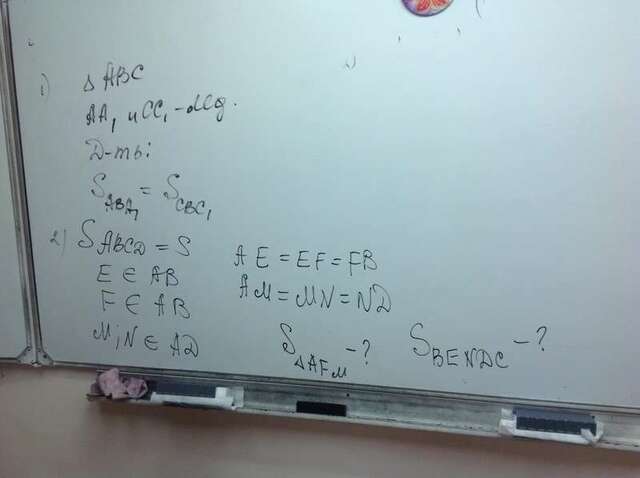 1) △ ABC
AA₁ и CC₁ - 
Д-ть:
S_ABA₁ = S_CBC₁
2) S_ABCD = S
E ∈ AB
F ∈ AB
M; N ∈ AD
AE = EF = FB
AM = MN = ND
S_△AFM - ?
S_BENDC - ?